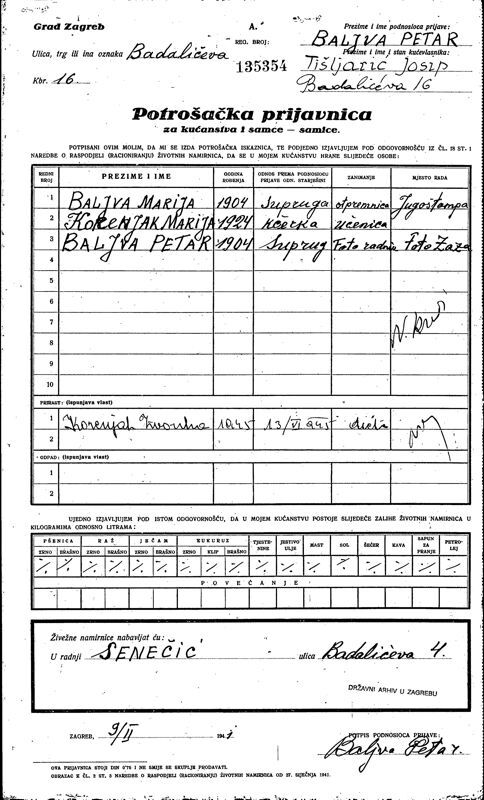 Grad Zagreb
A.
Prezime i ime podnosioca prijave:
REG. BROJ:
BALJVA PETAR
Ulica, trg ili ina oznaka Badalićeva
135354
Prezime i ime i stan kućevlasnika:
Tišljarić Josip
Kbr. 16.
Badalićeva 16
Potrošačka prijavnica
za kućanstva i samce — samice.
POTPISANI OVIM MOLIM, DA MI SE IZDA POTROŠAČKA ISKAZNICA, TE PODJEDNO IZJAVLJUJEM POD ODGOVORNOŠĆU IZ ČL. 18 ST. 1
NAREDBE O RASPODJELI (RACIONIRANJU) ŽIVOTNIH NAMIRNICA, DA SE U MOJEM KUĆANSTVU HRANE SLIJEDEĆE OSOBE:
REDNI BROJ
PREZIME I IME
GODINA ROĐENJA
ODNOS PREMA PODNOSIOCU PRIJAVE ODN. STARJEŠINI
ZANIMANJE
MJESTO RADA
1 BALJVA MARIJA 1904 Supruga otpremnica Jugoštampa
2 KORENJAK MARIJA 1924 kćerka učenica
3 BALJVA PETAR 1904 Suprug Foto radnik Foto Zaza
4
5
6
7
8
9
10
PRIRAST: (ispunjava vlast)
1 Korenjak 1945 13/VI 945
2
OTPAD: (ispunjava vlast)
1
2
UJEDNO IZJAVLJUJEM POD ISTOM ODGOVORNOŠĆU, DA U MOJEM KUĆANSTVU POSTOJE SLIJEDEĆE ZALIHE ŽIVOTNIH NAMIRNICA U
KILOGRAMIMA ODNOSNO LITRAMA:
PŠENICA RAŽ JEČAM KUKURUZ TJESTENINE JESTIVO ULJE MAST SOL ŠEĆER KAVA SAPUN ZA PRANJE PETROLEJ
ZRNO BRAŠNO ZRNO BRAŠNO ZRNO BRAŠNO ZRNO KLIP BRAŠNO
POVEĆANJE
Živežne namirnice nabavljat ću:
U radnji SENEČIĆ ulica Badalićeva 4.
DRŽAVNI ARHIV U ZAGREBU
ZAGREB, 9/II 194
POTPIS PODNOSIOCA PRIJAVE:
Baljva Petar.
OVA PRIJAVNICA STOJI DIN 0'75 I NE SMIJE SE SKUPLJE PRODAVATI.
OBRAZAC K ČL. 2 ST. 5 NAREDBE O RASPODJELI (RACIONIRANJU) ŽIVOTNIH NAMIRNICA OD 27. SIJEČNJA 1941.